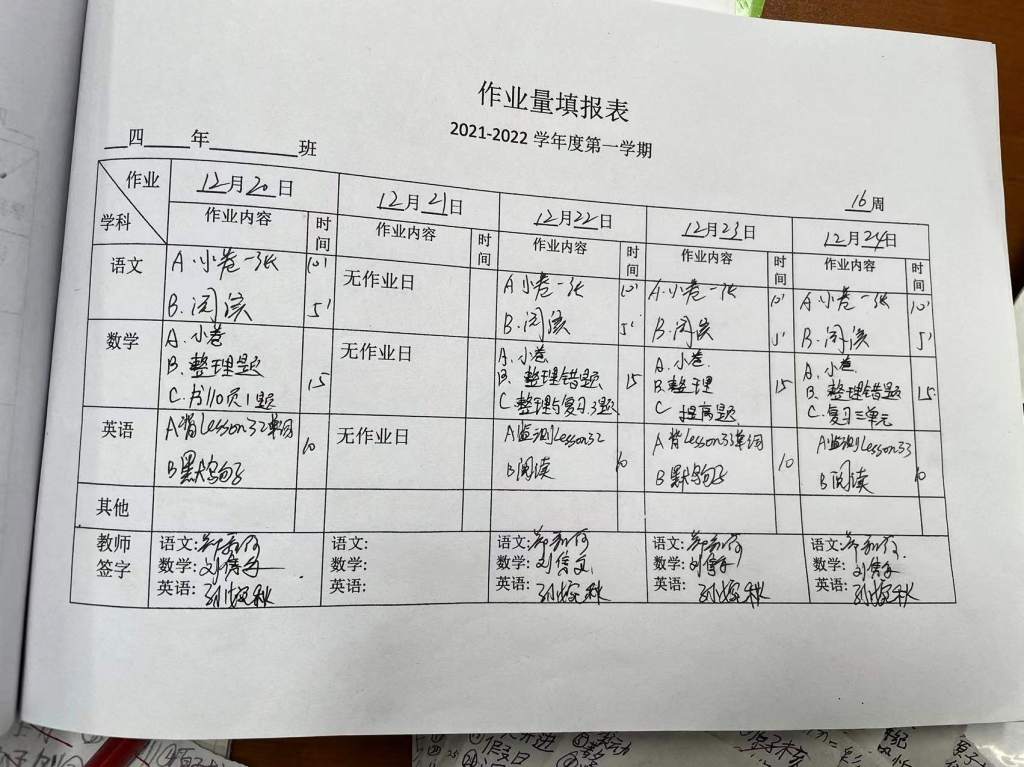 作业量填报表
2021-2022 学年度第一学期
四 年 班
16周
作业
学科
12月20日
12月21日
12月22日
12月23日
12月24日
作业内容 时间
作业内容 时间
作业内容 时间
作业内容 时间
作业内容 时间
语文
A.小卷一张 10'
B.阅读 5'
无作业日
A.小卷一张 10'
B.阅读 5'
A.小卷一张 10'
B.阅读 5'
A.小卷一张 10'
B.阅读 5'
数学
A.小卷
B.整理题
C.书110页1题
15
无作业日
A.小卷
B.整理错题
C.整理与复习.3题
15
A.小卷.
B.整理
C 提高题
15
A.小卷
B.整理错题
C.复习三单元
15
英语
A背Lesson32单词
B默写句子
10
无作业日
A监测Lesson32
B阅读
10
A背Lesson33单词
B默写句子
10
A监测Lesson33
B阅读
10
其他
教师
签字
语文:
数学:
英语:
语文:
数学:
英语:
语文:
数学:
英语:
语文:
数学:
英语:
语文:
数学:
英语: